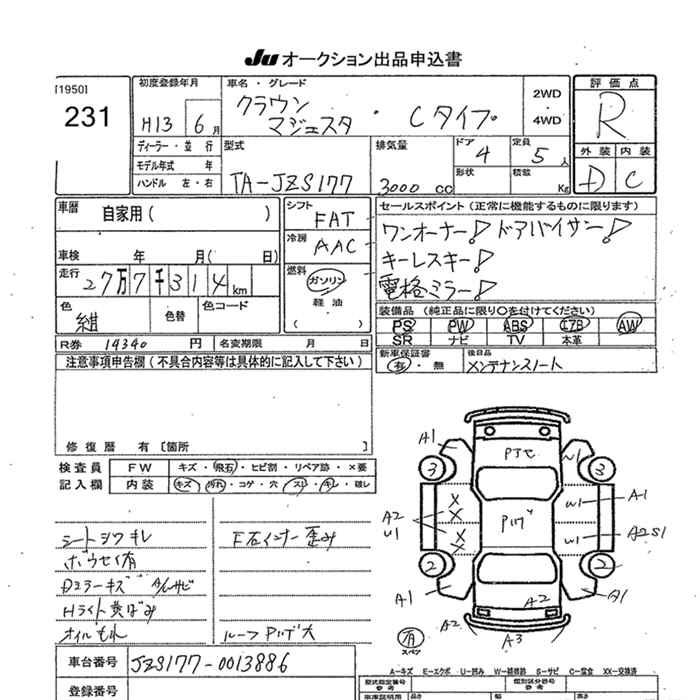 JU オークション出品申込書
[1950]
231
初度登録年月
H13 6月
車名・グレード
クラウン
マジェスタ ・ Cタイプ
2WD
・
4WD
評価点
R
ディーラー・並 行
モデル年式 年
ハンドル 左・右
型式
TA-JZS177
排気量
3000 cc
ドア
4
定員
5人
形状
積載
Kg
外装 内装
D C
車歴 自家用( )
シフト FAT
冷房 AAC
セールスポイント(正常に機能するものに限ります)
ワンオーナー! ドアバイザー!
キーレスキー!
電格ミラー!
車検 年 月( 日)
走行 27万7千314km
燃料 ガソリン
軽油
( )
色 紺
色替
色コード
装備品 (純正品に限り○を付けてください)
PS PW ABS エアB AW
SR ナビ TV 本革
R券 14340 円 名変期限 月 日
新車保証書 有・無
後日品
メンテナンスノート
注意事項申告欄(不具合内容等は具体的に記入して下さい)
修復歴 有〔箇所 〕
検査員
記入欄
FW キズ・飛石・ヒビ割・リペア跡・×要
内装 キズ・汚れ・コゲ・穴・スレ・キレ・破レ
シートシワキレ
ボウセイ有
Dミラーキズ A/Lサビ
Hライト黄ばみ
オイルもれ
F右インナー歪み
ルーフPバゲ大
A1
3
Pバゲ
W1
3
X
X
X
X
A2
U1
Pバゲ
W1
A1
W1
A2S1
2
2
A1
A1
A2
A2
A3
有
スペア
車台番号 JZS177-0013886
登録番号
A-キズ E-エクボ U-凹み W-補修跡 S-サビ C-腐食 XX-交換済
型式指定番号
参考
類別区分番号
参考
車庫証明用
長さ
幅
高さ